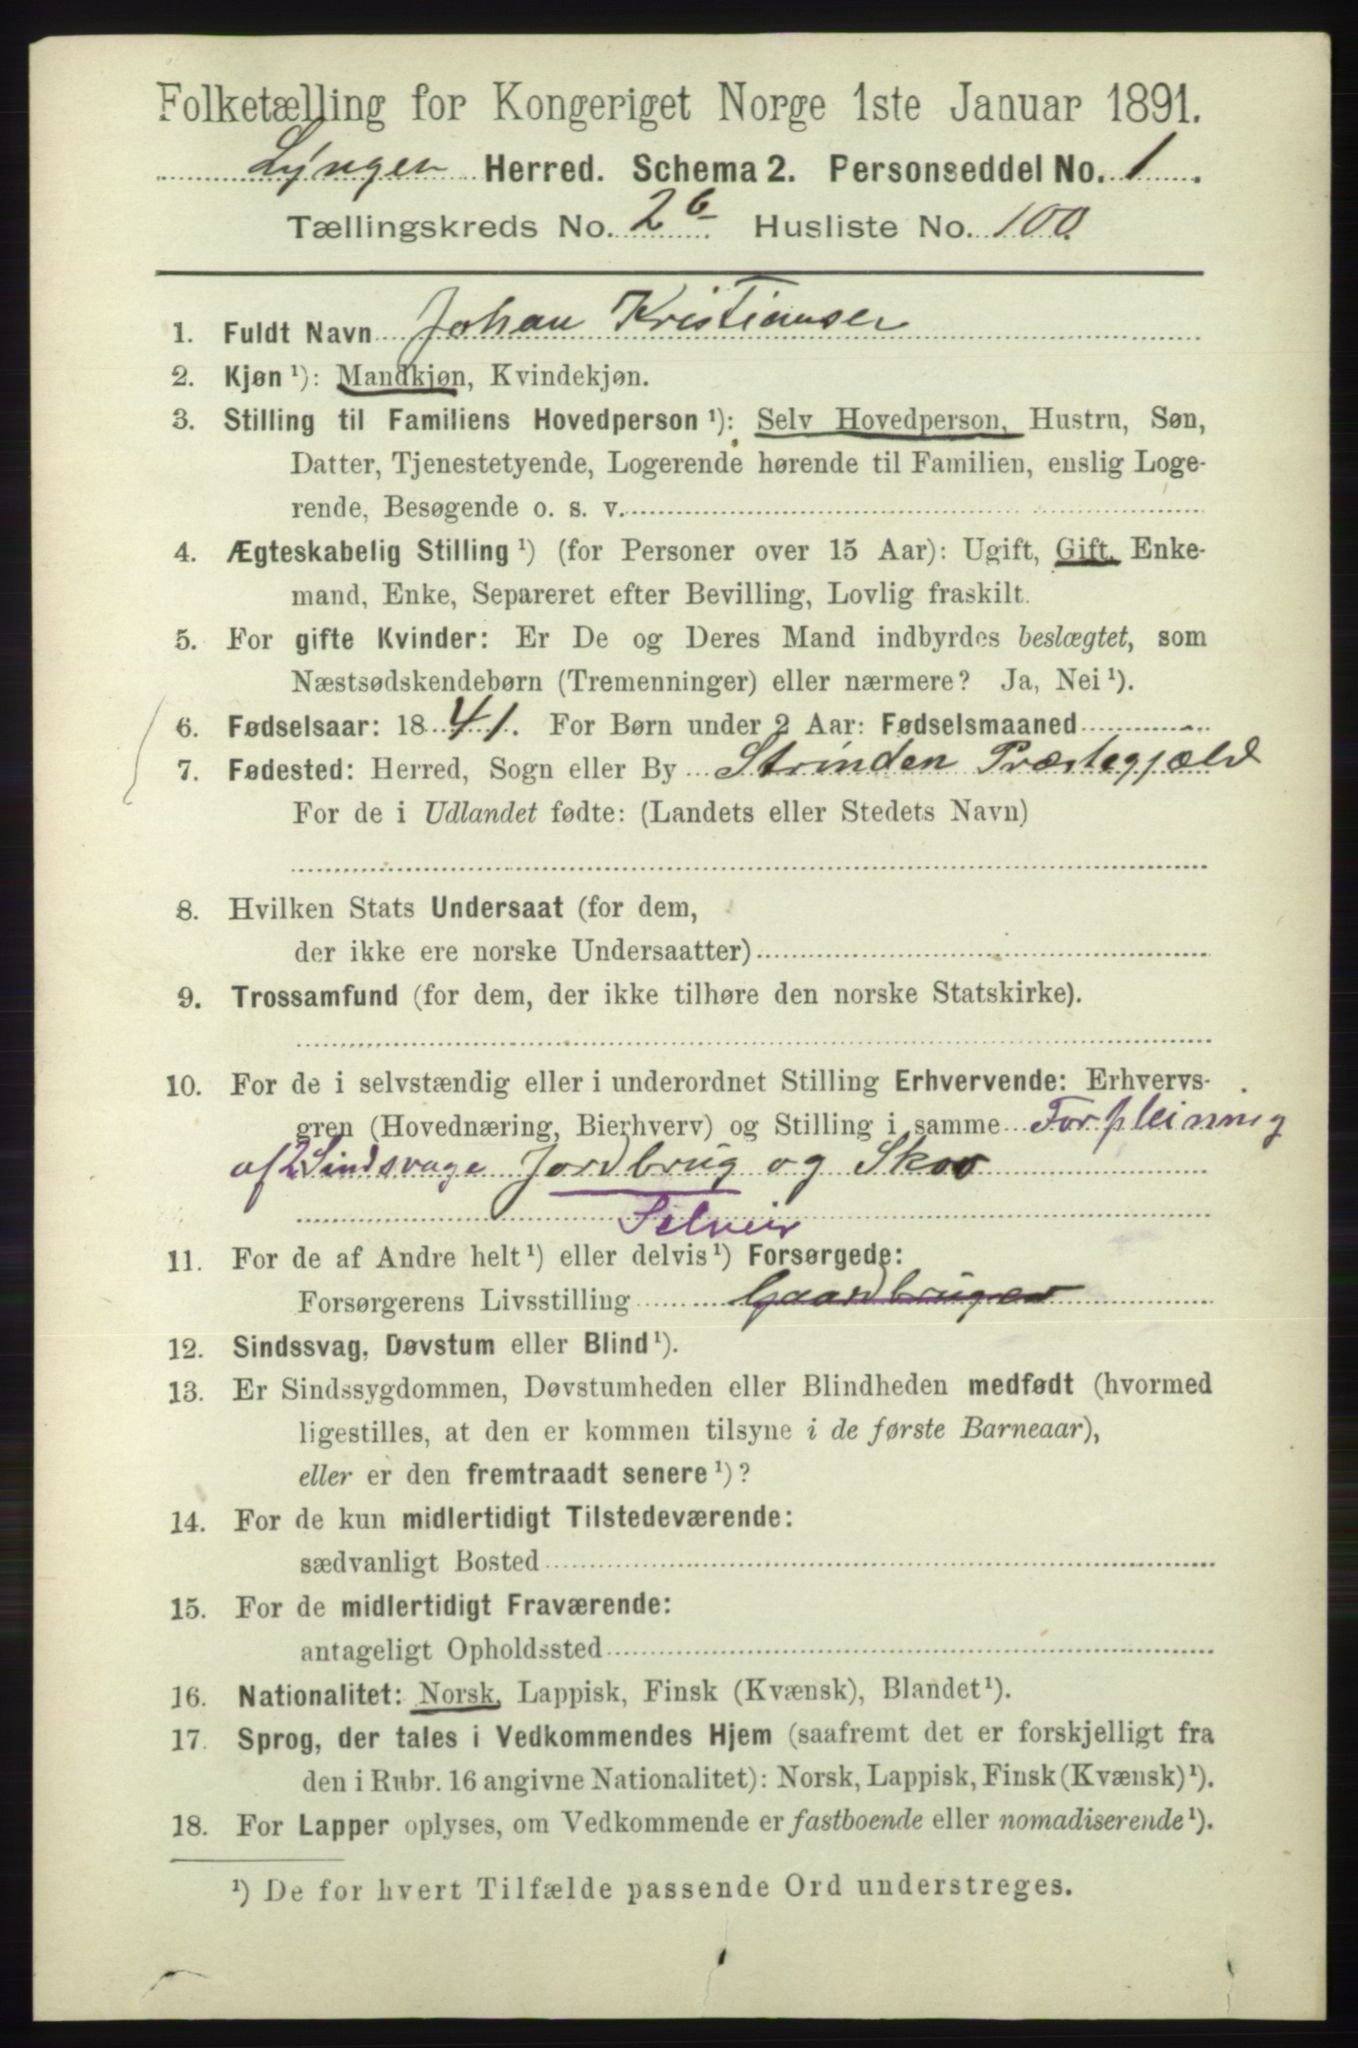 Folketælling for Kongeriget Norge 1ste Januar 1891.
Lyngen Herred. Schema 2. Personseddel No. 1.
Tællingskreds No. 2b Husliste No. 100.
1. Fuldt Navn Johan Kristiansen
2. Kjøn ¹): Mandkjøn, Kvindekjøn.
3. Stilling til Familiens Hovedperson ¹): Selv Hovedperson, Hustru, Søn,
Datter, Tjenestetyende, Logerende hørende til Familien, enslig Loge-
rende, Besøgende o. s. v.
4. Ægteskabelig Stilling ¹) (for Personer over 15 Aar): Ugift, Gift, Enke-
mand, Enke, Separeret efter Bevilling, Lovlig fraskilt.
5. For gifte Kvinder: Er De og Deres Mand indbyrdes beslægtet, som
Næstsødskendebørn (Tremenninger) eller nærmere? Ja, Nei ¹).
6. Fødselsaar: 1841. For Børn under 2 Aar: Fødselsmaaned
7. Fødested: Herred, Sogn eller By Strinden Præstegjæld
For de i Udlandet fødte: (Landets eller Stedets Navn)
8. Hvilken Stats Undersaat (for dem,
der ikke ere norske Undersaatter)
9. Trossamfund (for dem, der ikke tilhøre den norske Statskirke).
10. For de i selvstændig eller i underordnet Stilling Erhvervende: Erhvervs-
gren (Hovednæring, Bierhverv) og Stilling i samme Forpleining
af 2 Sindsvage Jordbrug og Skov
Selveier
11. For de af Andre helt ¹) eller delvis ¹) Forsørgede:
Forsørgerens Livsstilling Gaardbruger
12. Sindssvag, Døvstum eller Blind ¹).
13. Er Sindssygdommen, Døvstumheden eller Blindheden medfødt (hvormed
ligestilles, at den er kommen tilsyne i de første Barneaar),
eller er den fremtraadt senere ¹)?
14. For de kun midlertidigt Tilstedeværende:
sædvanligt Bosted
15. For de midlertidigt Fraværende:
antageligt Opholdssted
16. Nationalitet: Norsk, Lappisk, Finsk (Kvænsk), Blandet ¹).
17. Sprog, der tales i Vedkommendes Hjem (saafremt det er forskjelligt fra
den i Rubr. 16 angivne Nationalitet): Norsk, Lappisk, Finsk (Kvænsk) ¹).
18. For Lapper oplyses, om Vedkommende er fastboende eller nomadiserende ¹).
¹) De for hvert Tilfælde passende Ord understreges.